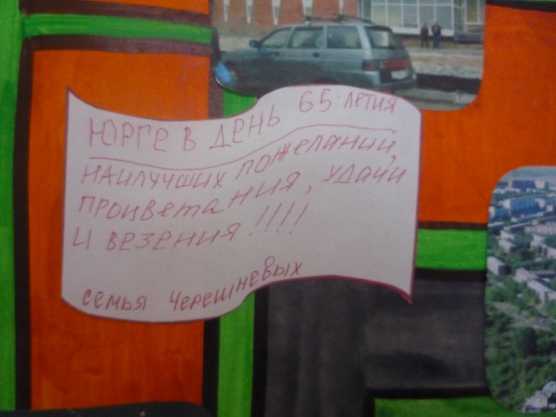 ЮРГЕ В ДЕНЬ 65-летия
НАИЛУЧШИХ ПОЖЕЛАНИЙ,
ПРОЦВЕТАНИЯ, УДАЧИ
И ВЕЗЕНИЯ !!!!
СЕМЬЯ ЧЕРЕШНЕВЫХ